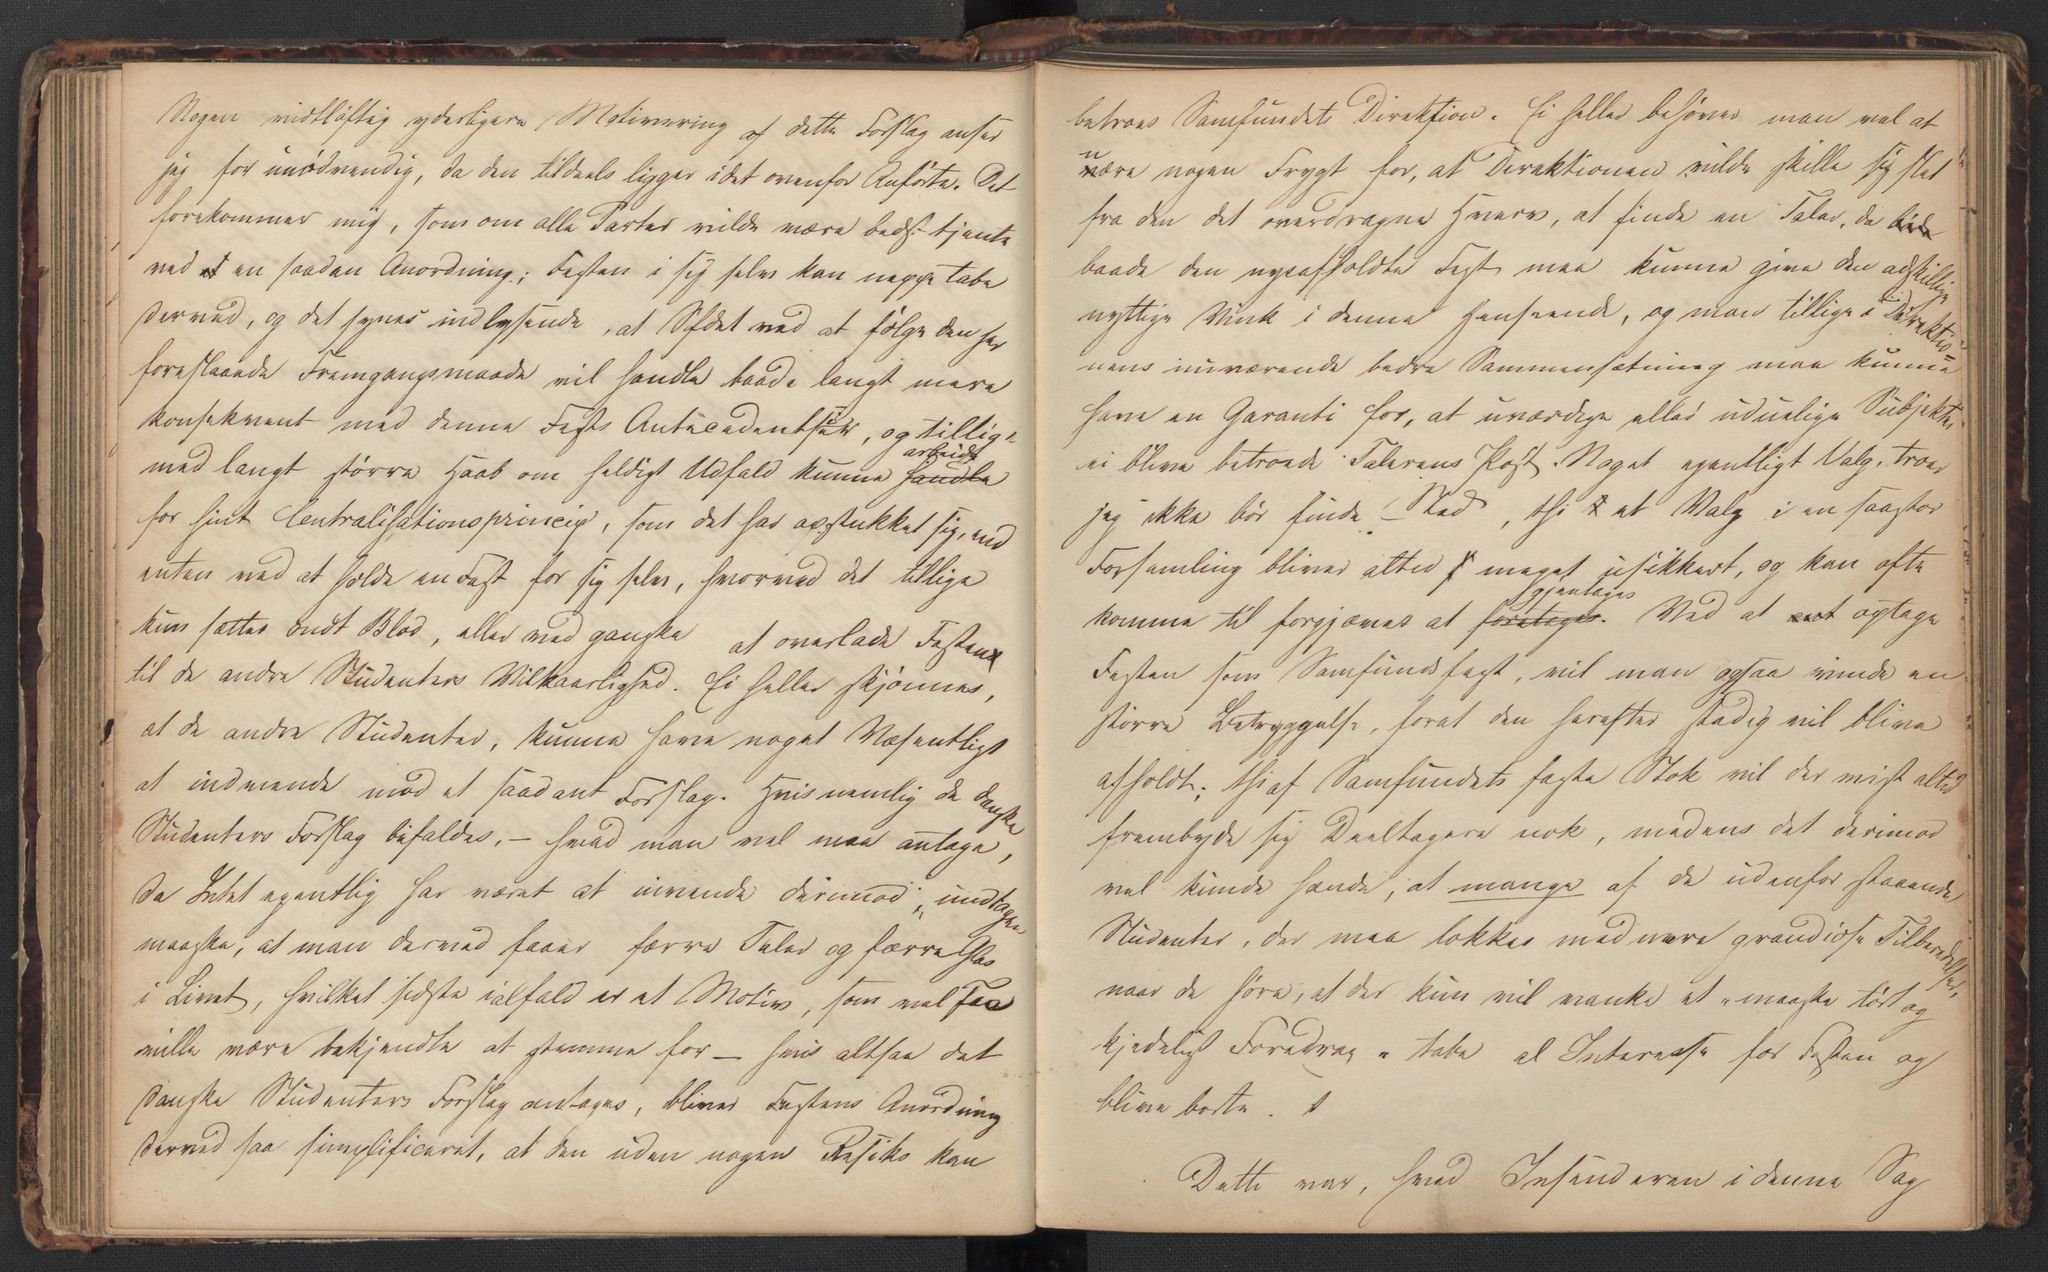 Nogen vidtløftig yderligere Motivering af dette Forslag anser
jeg for unødvendig, da den tildeels ligger i det ovenfor Anførte. Det
forekommer mig, som om alle Parter vilde være bedst tjente
ved en saadan Anordning; Festen i sig selv kan neppe tabe
derved, og det synes indlysende, at Sfdet ved at følge den her
foreslaaede Fremgangsmaade vil handle baade langt mere
konsekvent med denne Fests Antecedentser, og tillige
med langt større Haab om heldigt Udfald kunne handle arbeide
for hint Centralisationsprincip, som det har opstukket sig, end
enten ved at holde en Fest for sig selv, hvorved det tillige
kun sætter ondt Blod, eller ved ganske at overlade Festen
til de andre Studenters Vilkaarlighed. Ei heller skjønnes,
at de andre Studenter, kunne have noget Væsentligt
at indvende mod et saadant Forslag. Hvis nemlig de danske
Studenters Forslag bifaldes, – hvad man vel maa antage,
da Intet egentlig har været at invende derimod, undtagen
maaske, at man derved faaer færre Taler og færre Glas
i Livet, hvilket sidste ialfald er et Motiv, som vel Faa
ville være bekjendte at stemme for – hvis altsaa det
danske Studenters Forslag antages, bliver Festens Anordning
derved saa simplificeret, at den uden nogen Risiko kan
betroes Samfundets Direktion. Ei heller behøver man vel at
nære nogen Frygt for, at Direktionen vilde skille sig slet
fra den det overdragne Hverv, at finde en Taler, da
baade den nysafholdte Fest maa kunne give den adskillige
nyttige Vink i denne Henseende, og man tillige i Direktio-
nens nuværende bedre Sammensætning maa kunne
have en Garanti for, at uværdige eller uduelige Subjekter
ei blive betroede Talerens Post. Noget egentligt Valg, troer
jeg ikke bør finde Sted, thi et Valg i en saa stor
Forsamling bliver altid meget usikkert, og kan ofte
komme til forgjæves at foretages gjentages. Ved at optage
Festen som Samfundsfest, vil man ogsaa vinde en
større Betryggelse, forat den herefter stadig vil blive
afholdt; thi af Samfundets faste Stok vil der vist altid
frembyde sig Deeltagere nok, medens det derimod
vel kunde hænde, at mange af de udenfor staaende
Studenter, der maa lokkes med mere grandiose Tilberedelser,
naar de høre, at der kun vil vanke et "maaske tørt og
kjedeligt Foredrag" tabe al Interesse for Festen og
blive borte.
Dette var, hvad Insenderen i denne Sag